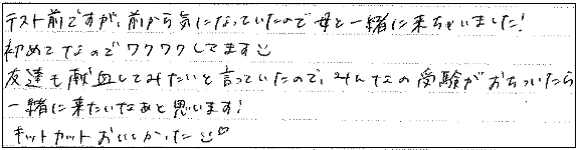 テスト前ですが、前から気になっていたので母と一緒に来ちゃいました!
初めてなのでワクワクしてます☺
友達も献血してみたいと言っていたので、みんなの受験がおちついたら
一緒に来たいなあと思います!
キットカットおいしかった☺♡